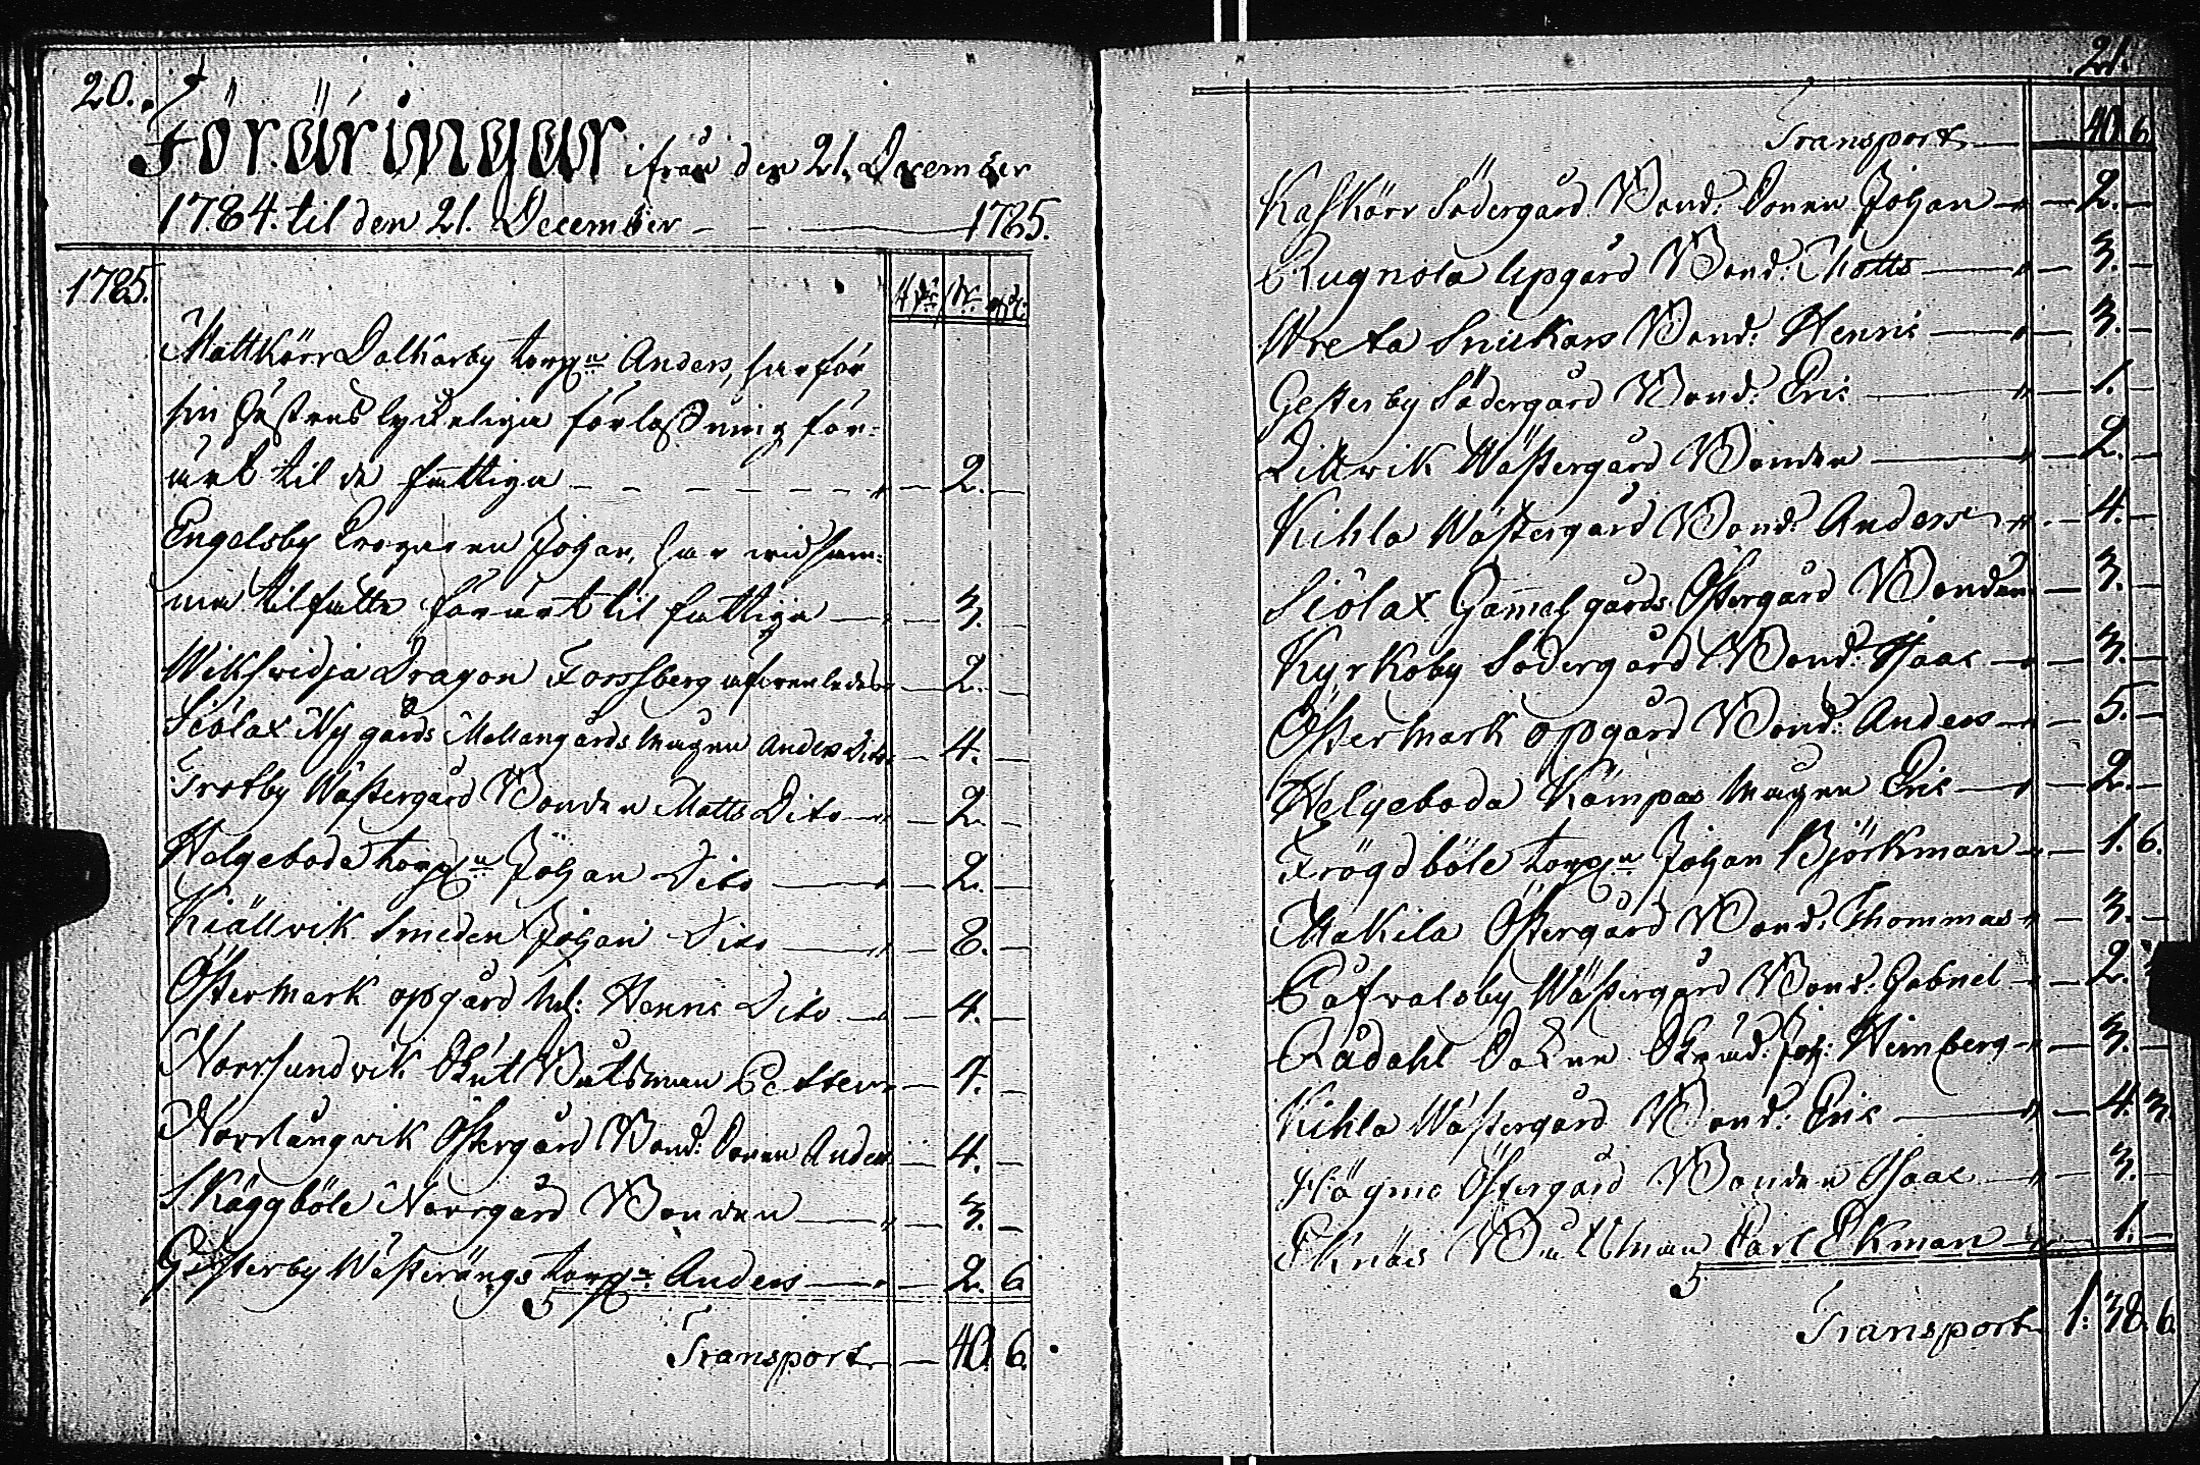 20.
Föräringar ifrån den 21. December
1784. til den 21. December 1785.
1785.
Mattkärr Dalkarby torp:n Anders, har för
sin Hustrus lyckeliga förlossning för-
ärt til de fattiga - - - - - - - " — 2. —
Engelsby Dragaren Johan, har wid sam-
ma tilfälle förärt til fattiga — " — 3. —
Wikswidja Dragon Forssberg — 2. —
Siölax Nygårds Mellangårds Mågen Anders Dito — 4. —
Trotby Wästergård Bonden Matts Dito — " — 2. —
Helgeboda torp:n Johan Dito — " — 2. —
Kiällvik Smeden Johan Dito — " — 8. —
Östermark opgård Henric Dito — " — 4. —
Norrsundvik Båtsman Petter — 4. —
Norrlångvik Östergård Bond: Sonen Anders — 4. —
Skäggböle Norrgård Bonden — " — 3. —
Gästerby Wästerängs torp:n Anders — " — 2. 6.
Transport — 40. 6.
21.
Transport — 40. 6.
Kaskärr Södergård Bond: Sonen Johan — " — 2. —
Rugnola Upgård Bond: Matts — " — 3. —
Wreta Snickars Bond: Henric — " — 3. —
Gesterby Södergård Bond: Eric — " — 1. —
Wästergård Bonden — " — 2. —
Kihla Wästergård Bond: Anders — " — 4. —
Siölax Gam̄elgårds Östergård Bonden — 3. —
Kyrkoby Södergård Bond: Isaac — " — 3. —
Östermark opgård Bond: Anders — " — 5. —
Helgeboda Kämpas Mågen Eric — " — 2. —
Frögdböle torp:n Johan Björkman — " — 1. 6.
Makila Östergård Bond: Thommas " — 3. —
Påfvalsby Wästergård Bond: Gabriel — " — 2.
Rådahl Joh: Heimberg — " — 3. —
Kihla Wästergård Bond: Eric — " — 4. 3.
Högmo Östergård Bonden Isaac — " — 3. —
Eknäs Båtsman Carl Ekman — " — 1. —
Transport 1. 38. 6.